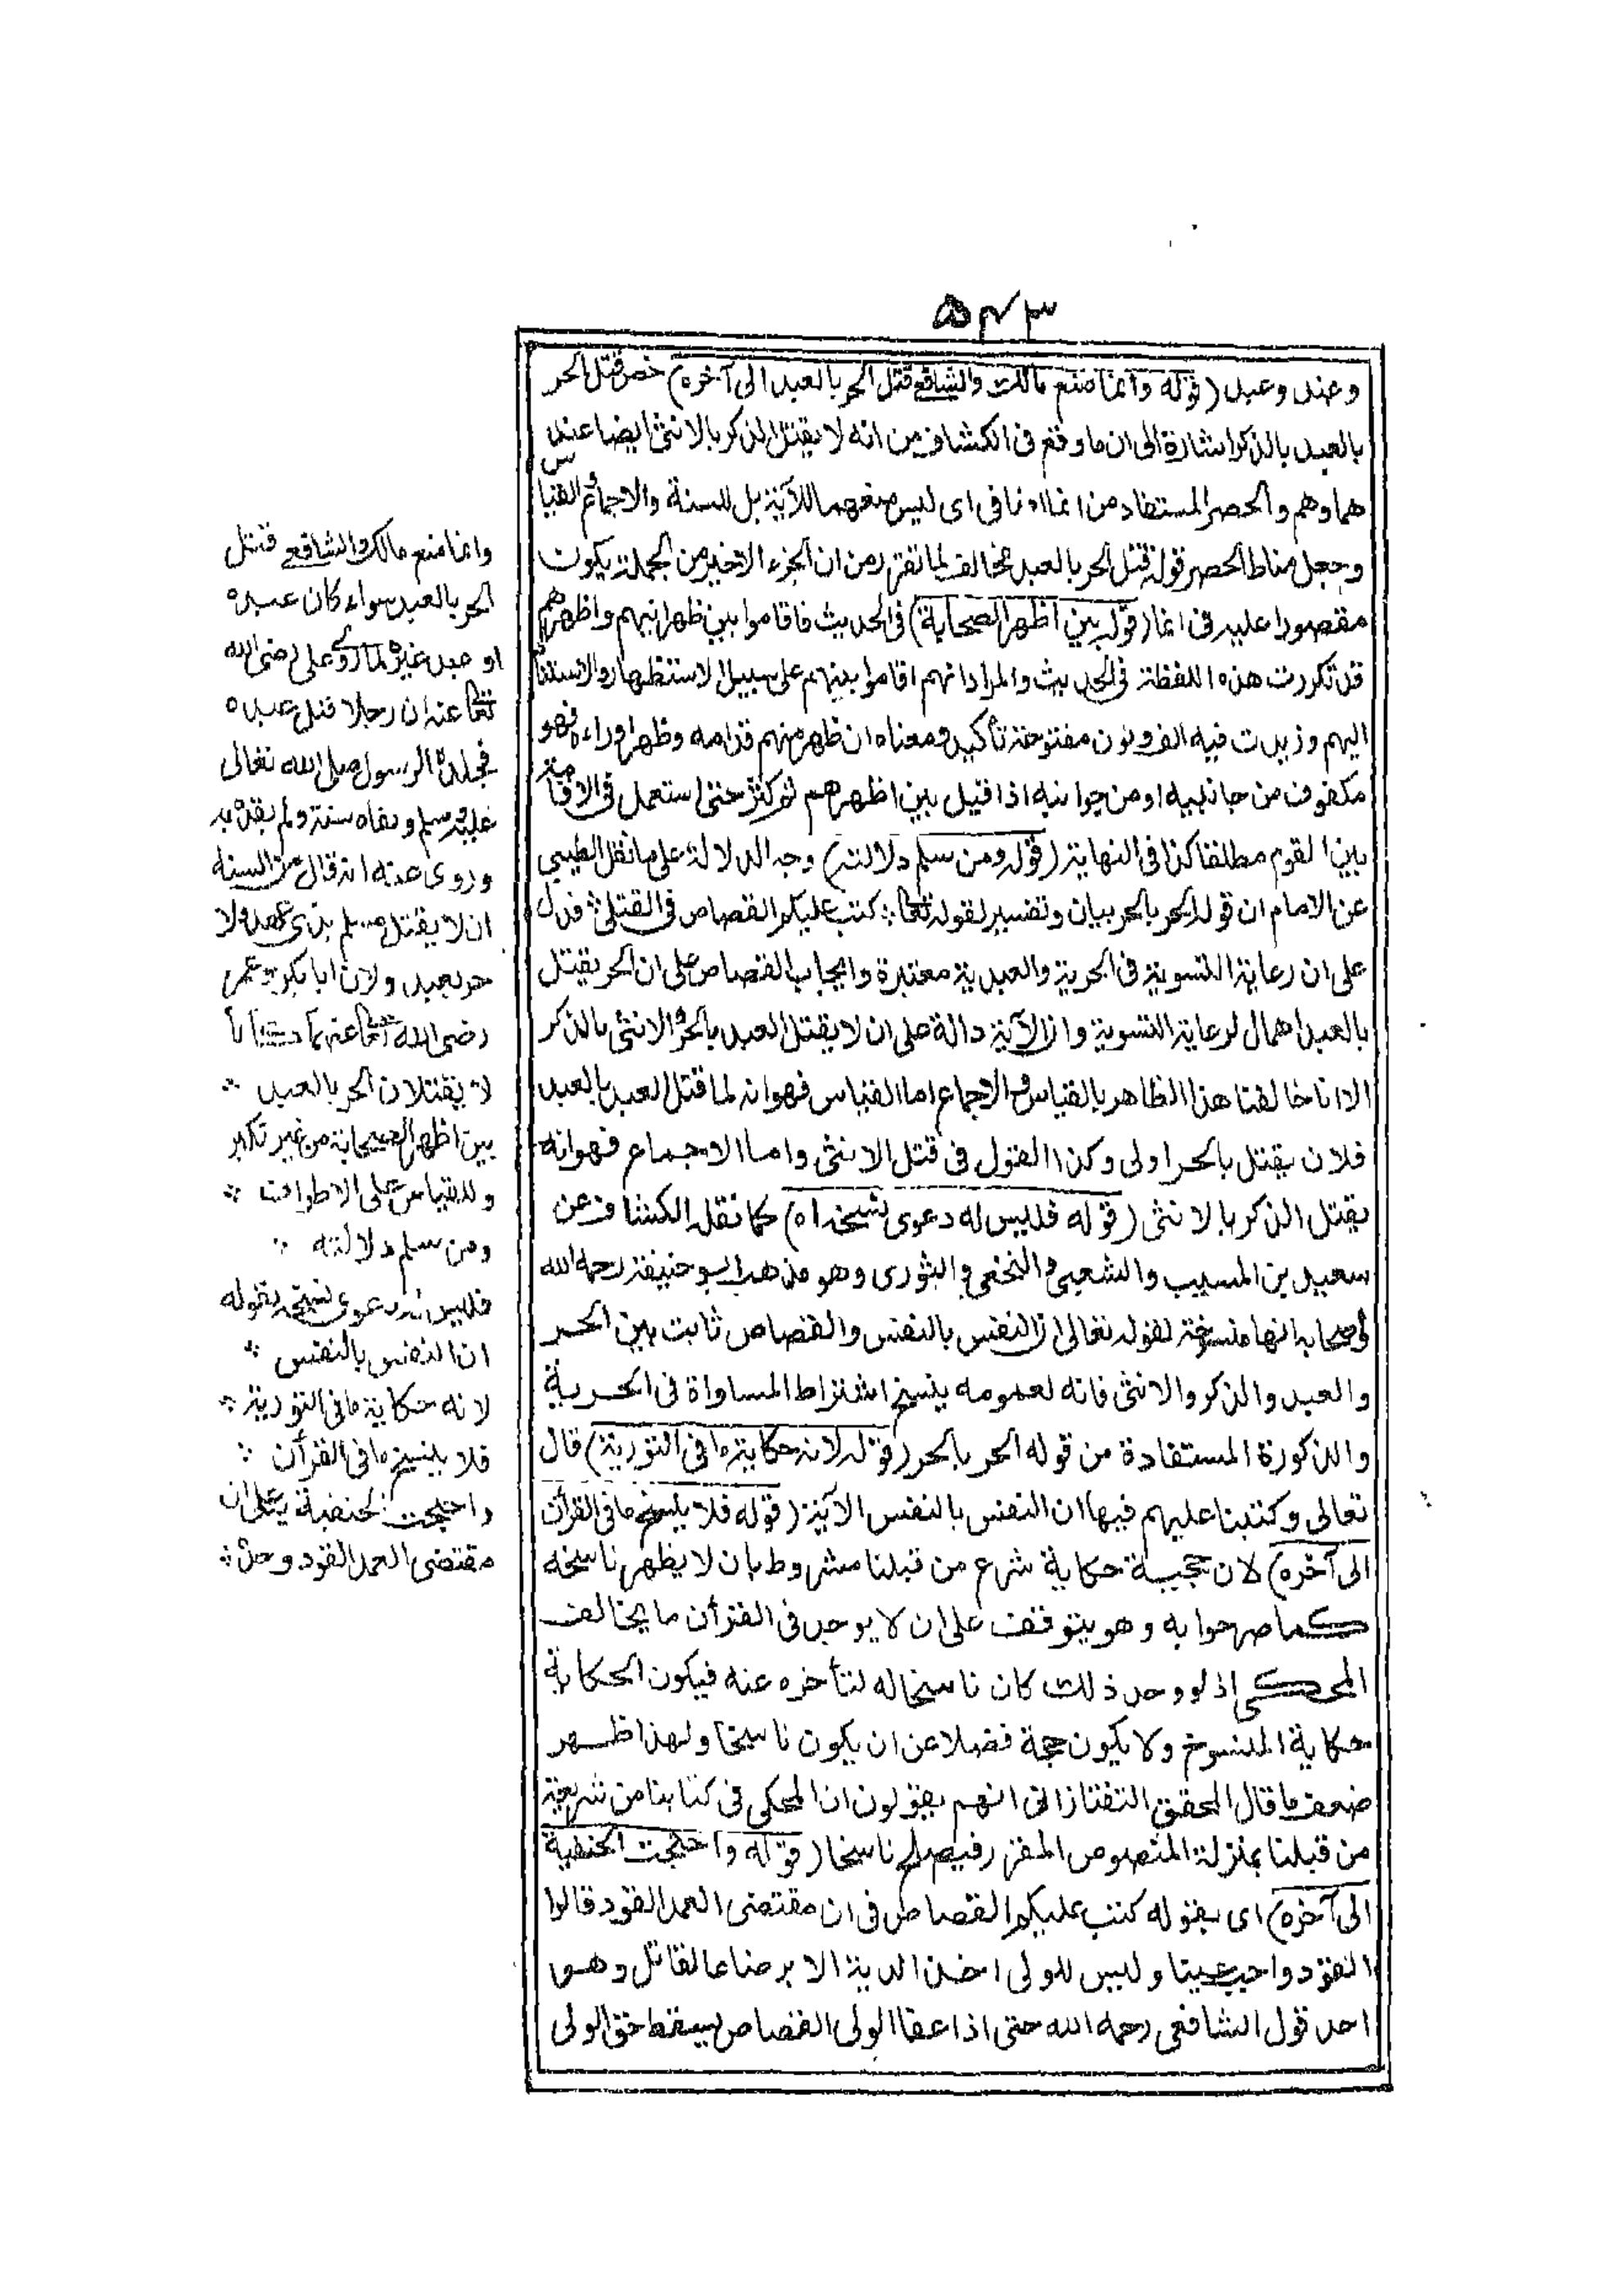 ٥٤٣
وعند وعبد (قوله وانما منع مالك والشافعي قتل الحر بالعبد الى آخره) خص قتل الحر
بالعبد بالذكر اشارة الى ان ما وقع فى الكشاف من انه لا يقتل الذكر بالانثى ايضا عند
هما وهم والحصر المستفاد من انما اى ليس منعهما للآية بل للسنة والاجماع القياس
وجعل مناط الحصر قوله قتل الحر بالعبد مخالف لما تقرر من ان الجزء الاخير من الجملة يكون
مقصورا عليه فى انما (قوله بين اظهر الصحابة) فى الحديث فاقاموا بين ظهرانيهم واظهرهم
قد تكررت هذه اللفظة فى الحديث والمراد انهم اقاموا بينهم على سبيل الاستظهار والاستناد
اليهم وزيدت فيه الف ونون مفتوحة تأكيدا ومعناه ان ظهرا منهم قدامه وظهرا وراءه فهو
مكفوف من جانبيه او من جوانبه اذا قيل بين اظهرهم ثم كثر حتى استعمل فى الاقامة
بين القوم مطلقا كذا فى النهاية (قوله ومن سلم دلالته) وجه الدلالة على ما نقل الطيبي
عن الامام ان قوله الحر بالحر بيان وتفسير لقوله تعالى كتب عليكم القصاص فى القتلى فدل
على ان رعاية التسوية فى الحرية والعبدية معتبرة وايجاب القصاص على ان الحر يقتل
بالعبد اهمال لرعاية التسوية وان الآية دالة على ان لا يقتل العبد بالحر والانثى بالذكر
الا انا خالفنا هذا الظاهر بالقياس والاجماع اما القياس فهو انه لما قتل العبد بالعبد
فلان يقتل بالحر اولى وكذا القول فى قتل الانثى واما الاجماع فهو انه
يقتل الذكر بالانثى (قوله فليس له دعوى نسخه اه) كما نقله الكشاف عن
سعيد بن المسيب والشعبي والنخعي والثورى وهو مذهب ابو حنيفة رحمه الله
واصحابه انها منسوخة لقوله تعالى ان النفس بالنفس والقصاص ثابت بين الحر
والعبد والذكر والانثى فانه لعمومه ينسخ اشتراط المساواة فى الحرية
والذكورة المستفادة من قوله الحر بالحر (قوله لانه حكاية ما فى التورية) قال
تعالى وكتبنا عليهم فيها ان النفس بالنفس الآية (قوله فلا ينسخ ما فى القرأن
الى آخره) لان حجية حكاية شرع من قبلنا مشروط بان لا يظهر ناسخه
كما صرحوا به وهو يتوقف على ان لا يوجد فى القرأن ما يخالف
المحكى اذ لو وجد ذلك كان ناسخا له لتأخره عنه فيكون الحكاية
حكاية المنسوخ ولا يكون حجة فضلا عن ان يكون ناسخا ولهذا ظهر
ضعف ما قال المحقق التفتازانى انهم يقولون ان المحكى فى كتابنا من شريعة
من قبلنا بمنزلة المنصوص المقرر فيصلح ناسخا (قوله واحتجت الحنفية
الى آخره) اى بقوله كتب عليكم القصاص فى ان مقتضى العمد القود قالوا
القود واجب عينا وليس للولى اخذ الدية الا برضاء القاتل وهو
احد قول الشافعى رحمه الله حتى اذا عفا الولى القصاص يسقط حق الولى
وانما منع مالك والشافعي قتل
الحر بالعبد سواء كان عبده
او عبد غيره لما روى على رضى الله
تعالى عنه ان رجلا قتل عبده
فجلده الرسول صلى الله تعالى
عليه وسلم ونفاه سنة ولم يقده به
وروى عنه انه قال من السنة
ان لا يقتل مسلم بذى عهد ولا
حر بعبد ولان ابا بكر وعمر
رضى الله تعالى عنهما كانا
لا يقتلان الحر بالعبد
بين اظهر الصحابة من غير نكير
وللقياس على الاطراف
ومن سلم دلالته
فليس له دعوى نسخه بقوله
ان النفس بالنفس
لانه حكاية ما فى التورية
فلا ينسخ ما فى القرأن
واحتجت الحنفية به على ان
مقتضى العمد القود وحده